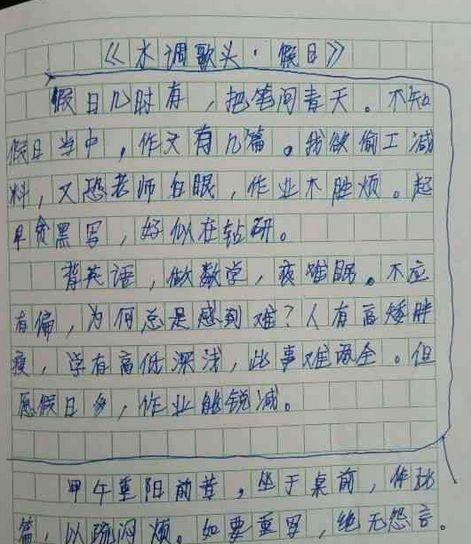 《水调歌头·假日》
假日几时有，把笔问青天。不知
假日当中，作文有几篇。我欲偷工减
料，又恐老师白眼，作业不胜烦。起
早贪黑写，好似在钻研。
背英语，做数学，夜难眠。不应
有偏，为何总是感到难？人有高矮胖
瘦，学有高低深浅，此事难两全。但
愿假日多，作业能锐减。
甲午重阳前昔，坐于桌前，作此
篇，以疏闷烦。如要重写，绝无怨言。